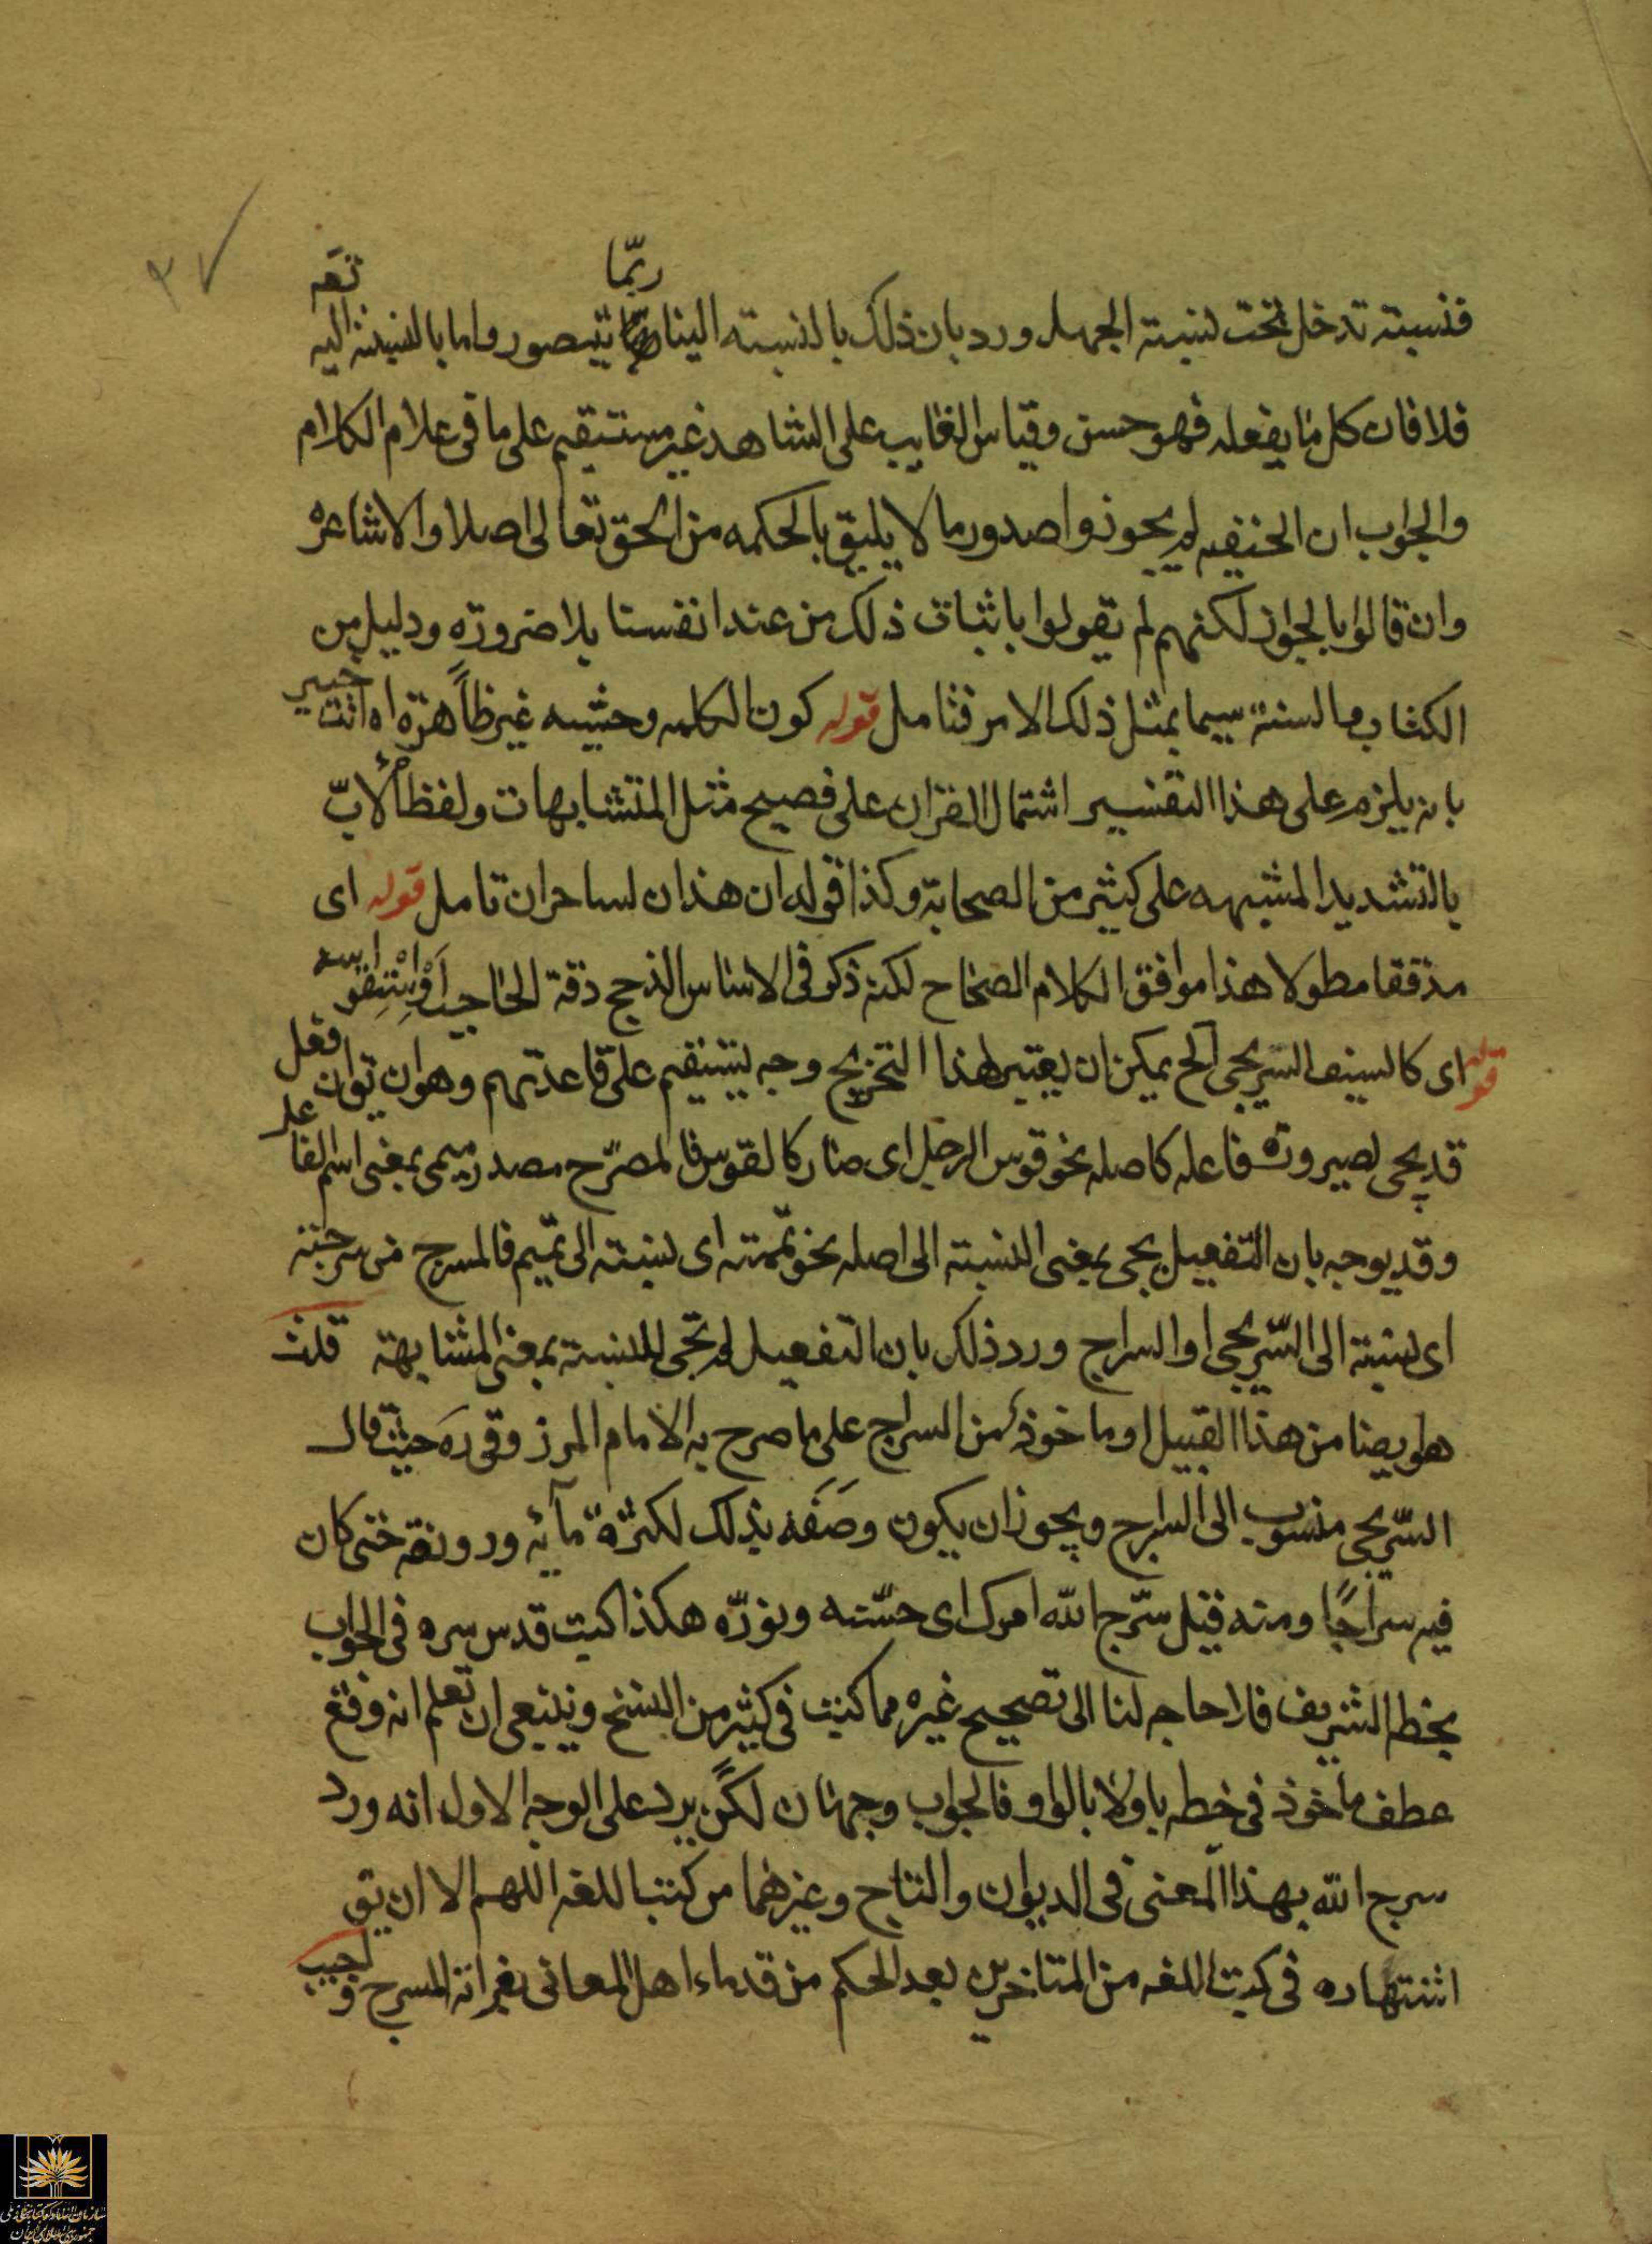 ٣٧
فنسبته تدخل تحت نسبته الجهل ورد بان ذلك بالنسبته الينا ربّما يتصور واما بالنسبته اليه تعه
فلا فان كل ما يفعله فهو حسن وقياس الغايب على الشاهد غير مستقيم على ما فى علام الكلام
والجواب ان الحنفيه لم يجوزوا صدور ما لا يليق بالحكمه من الحق تعالى اصلا والاشاعره
وان قالوا بالجواز لكنهم لم يقولوا باثبات ذلك من عند انفسنا بلا ضرورة ودليل من
الكتاب والسنة سيما بمثل ذلك الامر فتامل قوله كون الكلمه وحشيه غير ظاهرة اه انت خبير
بانه يلزم على هذا التفسير اشتمال القران على فصيح مثل المتشابهات ولفظ الأبّ
بالتشديد المشبهه على كثير من الصحابة وكذا قوله ان هذان لساحران تامل قوله اى
مدققا مطولا هذا موافق الكلام الصحاح لكنه ذكر فى الاساس الزجج دقة الحاجب واستقواسه
قوله اى كالسيف السريجى الخ يمكن ان يعتبر لهذا التخريج وجه يستقيم على قاعدتهم وهو ان يق ان فعل
قد يجى لصيرورة فاعله كاصله نحو قوس الرجل اى صار كالقوس فالمسرّج مصدر ميمى بمعنى اسم الفاعل
وقد يوجه بان التفعيل يجى بمعنى النسبته الى اصله نحو تممته اى نسبته الى تميم فالمسرج من سرجته
اى نسبته الى السّريجى او السراج ورد ذلك بان التفعيل لم تجى للنسبته بمعنى المشابهة قلت
هو ايضا من هذا القبيل او ماخوذ من السراج على ما صرح به الامام المرزوقى ره حيث قال
السّريجى منسوب الى السراج ويجوز ان يكون وصفه بذلك لكثرة مآئه ورونقه حتى كان
فيه سراجًا ومنه قيل سرّج الله امرك اى حسّنه ونورّه هكذا كتبت قدس سره فى الجواب
بخطه الشريف فلا حاجه لنا الى تصحيح غيره مما كتبت فى كثير من النسخ وينبغى ان تعلم انه وقع
عطف ماخوذ فى خطه باو لا بالواو فالجواب وجهان لكن يرد على الوجه الاول انه ورد
سرج الله بهذا المعنى فى الديوان والتاج وغيرهما من كتب اللغه اللهم الا ان يق
اشتهاره فى كتب اللغه من المتاخرين بعد الحكم من قدماء اهل المعانى بغرابة المسرج واجيب